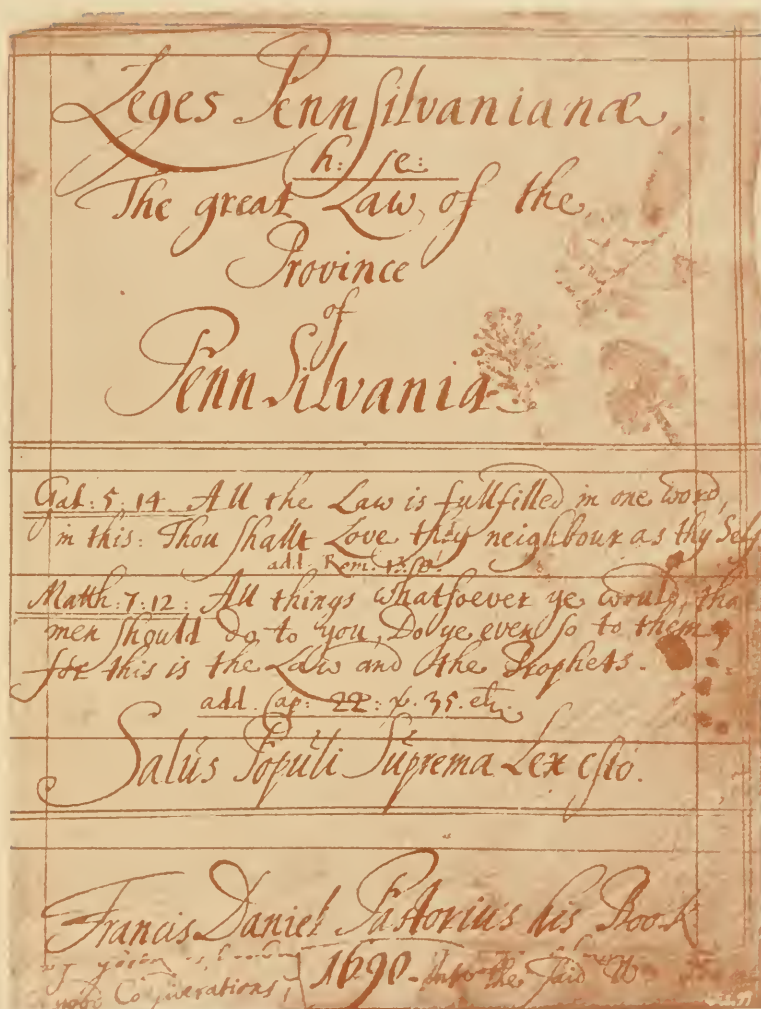 Leges PennSilvanianæ,
h: ſe:
The great Law, of the,
Province
of
PennSilvania
Gal: 5. 14. All the Law is fullfilled in one word,
in this: Thou ſhallt Love they neighbour as thy Self.
add. Rom.
Matth: 7: 12: All things whatſoever ye would, tha
men ſhould do to you, Do ye even ſo to them,
for this is the Law and the Prophets.
add. Cap: 22: v. 35. etc.
Salus Populi Suprema Lex eſto.
Francis Daniel Pastorius his Book
1690. the ſaid